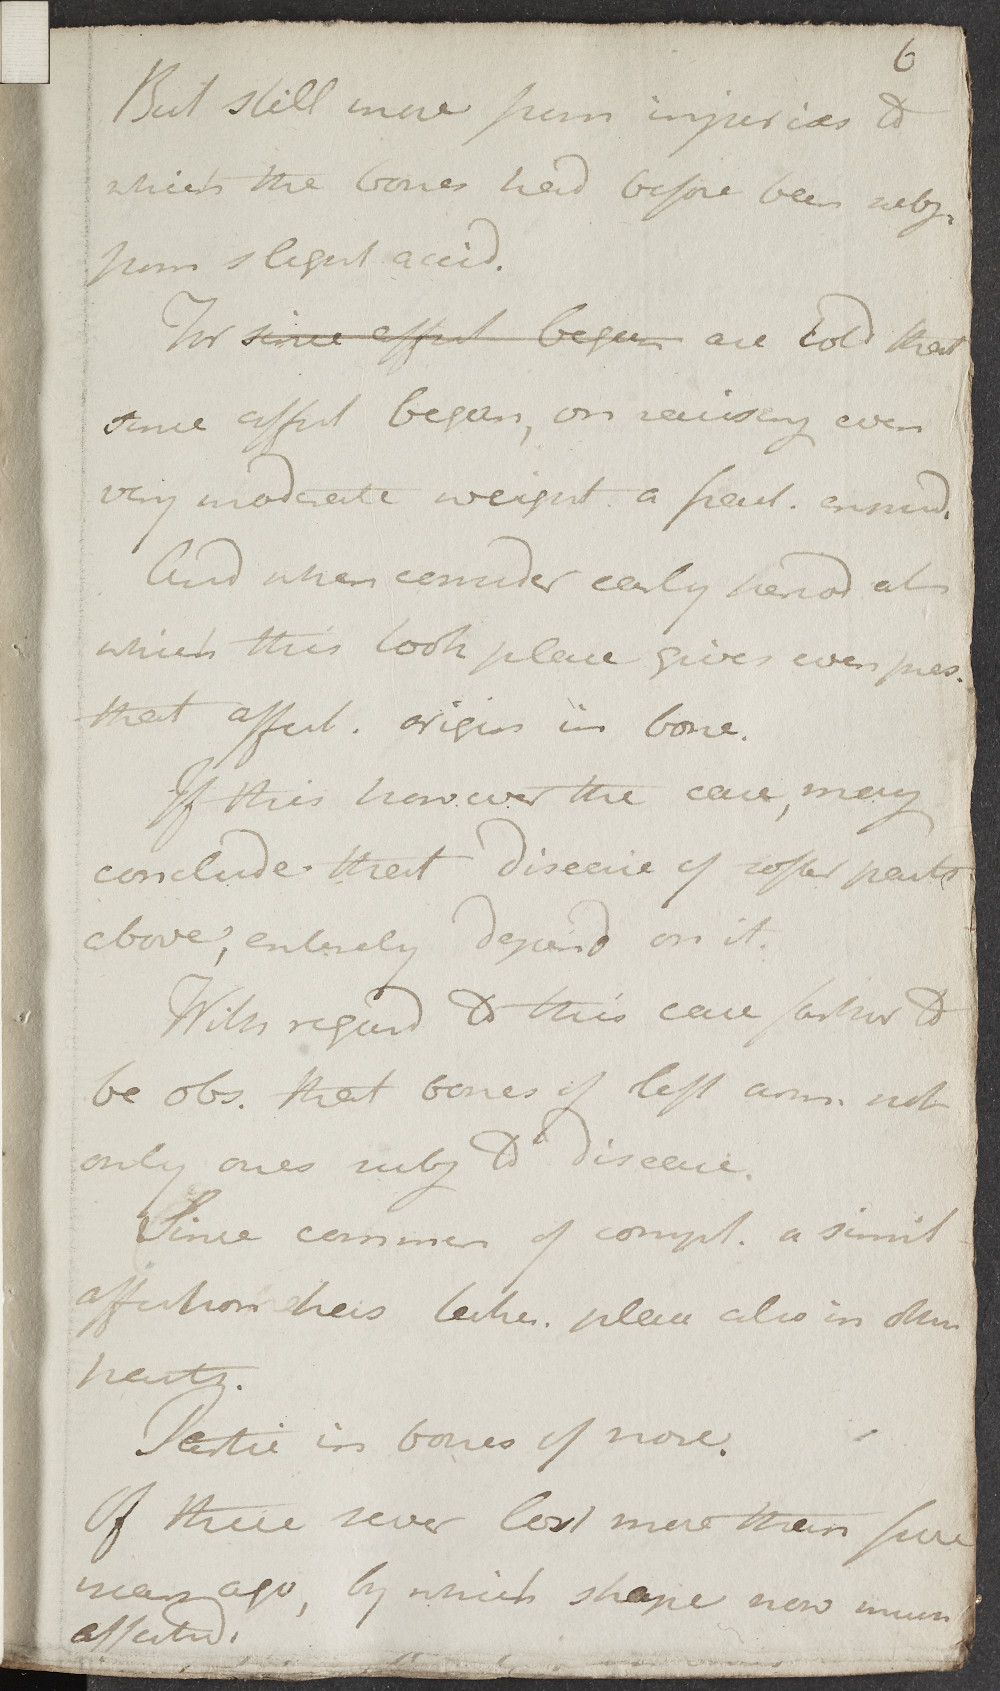 6
But still more from injuries to
which the bones had before been subj.
from slight accid.
For since affect began are told that
since affect began, on raising even
very moderate weight a fract. ensued.
And when consider early period at
which this took place gives even pres.
that affect. origin in bone.
If this however the case, may
conclude that disease of softer parts
above, entirely depend on it.
With regard to this case farther to
be obs. that bones of left arm not
only ones subj to disease.
Since commen of compl. a simil
affection has taken place also in other
parts.
Partic in bones of nose.
Of these sever lost more than
years ago, by which shape now much
affected.